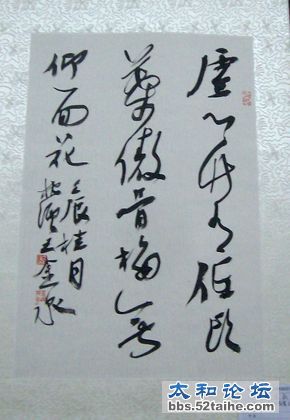 虚心竹有低头
葉傲骨梅无
仰面花
壬辰桂月
王金承
太和论坛
bbs.52taihe.com